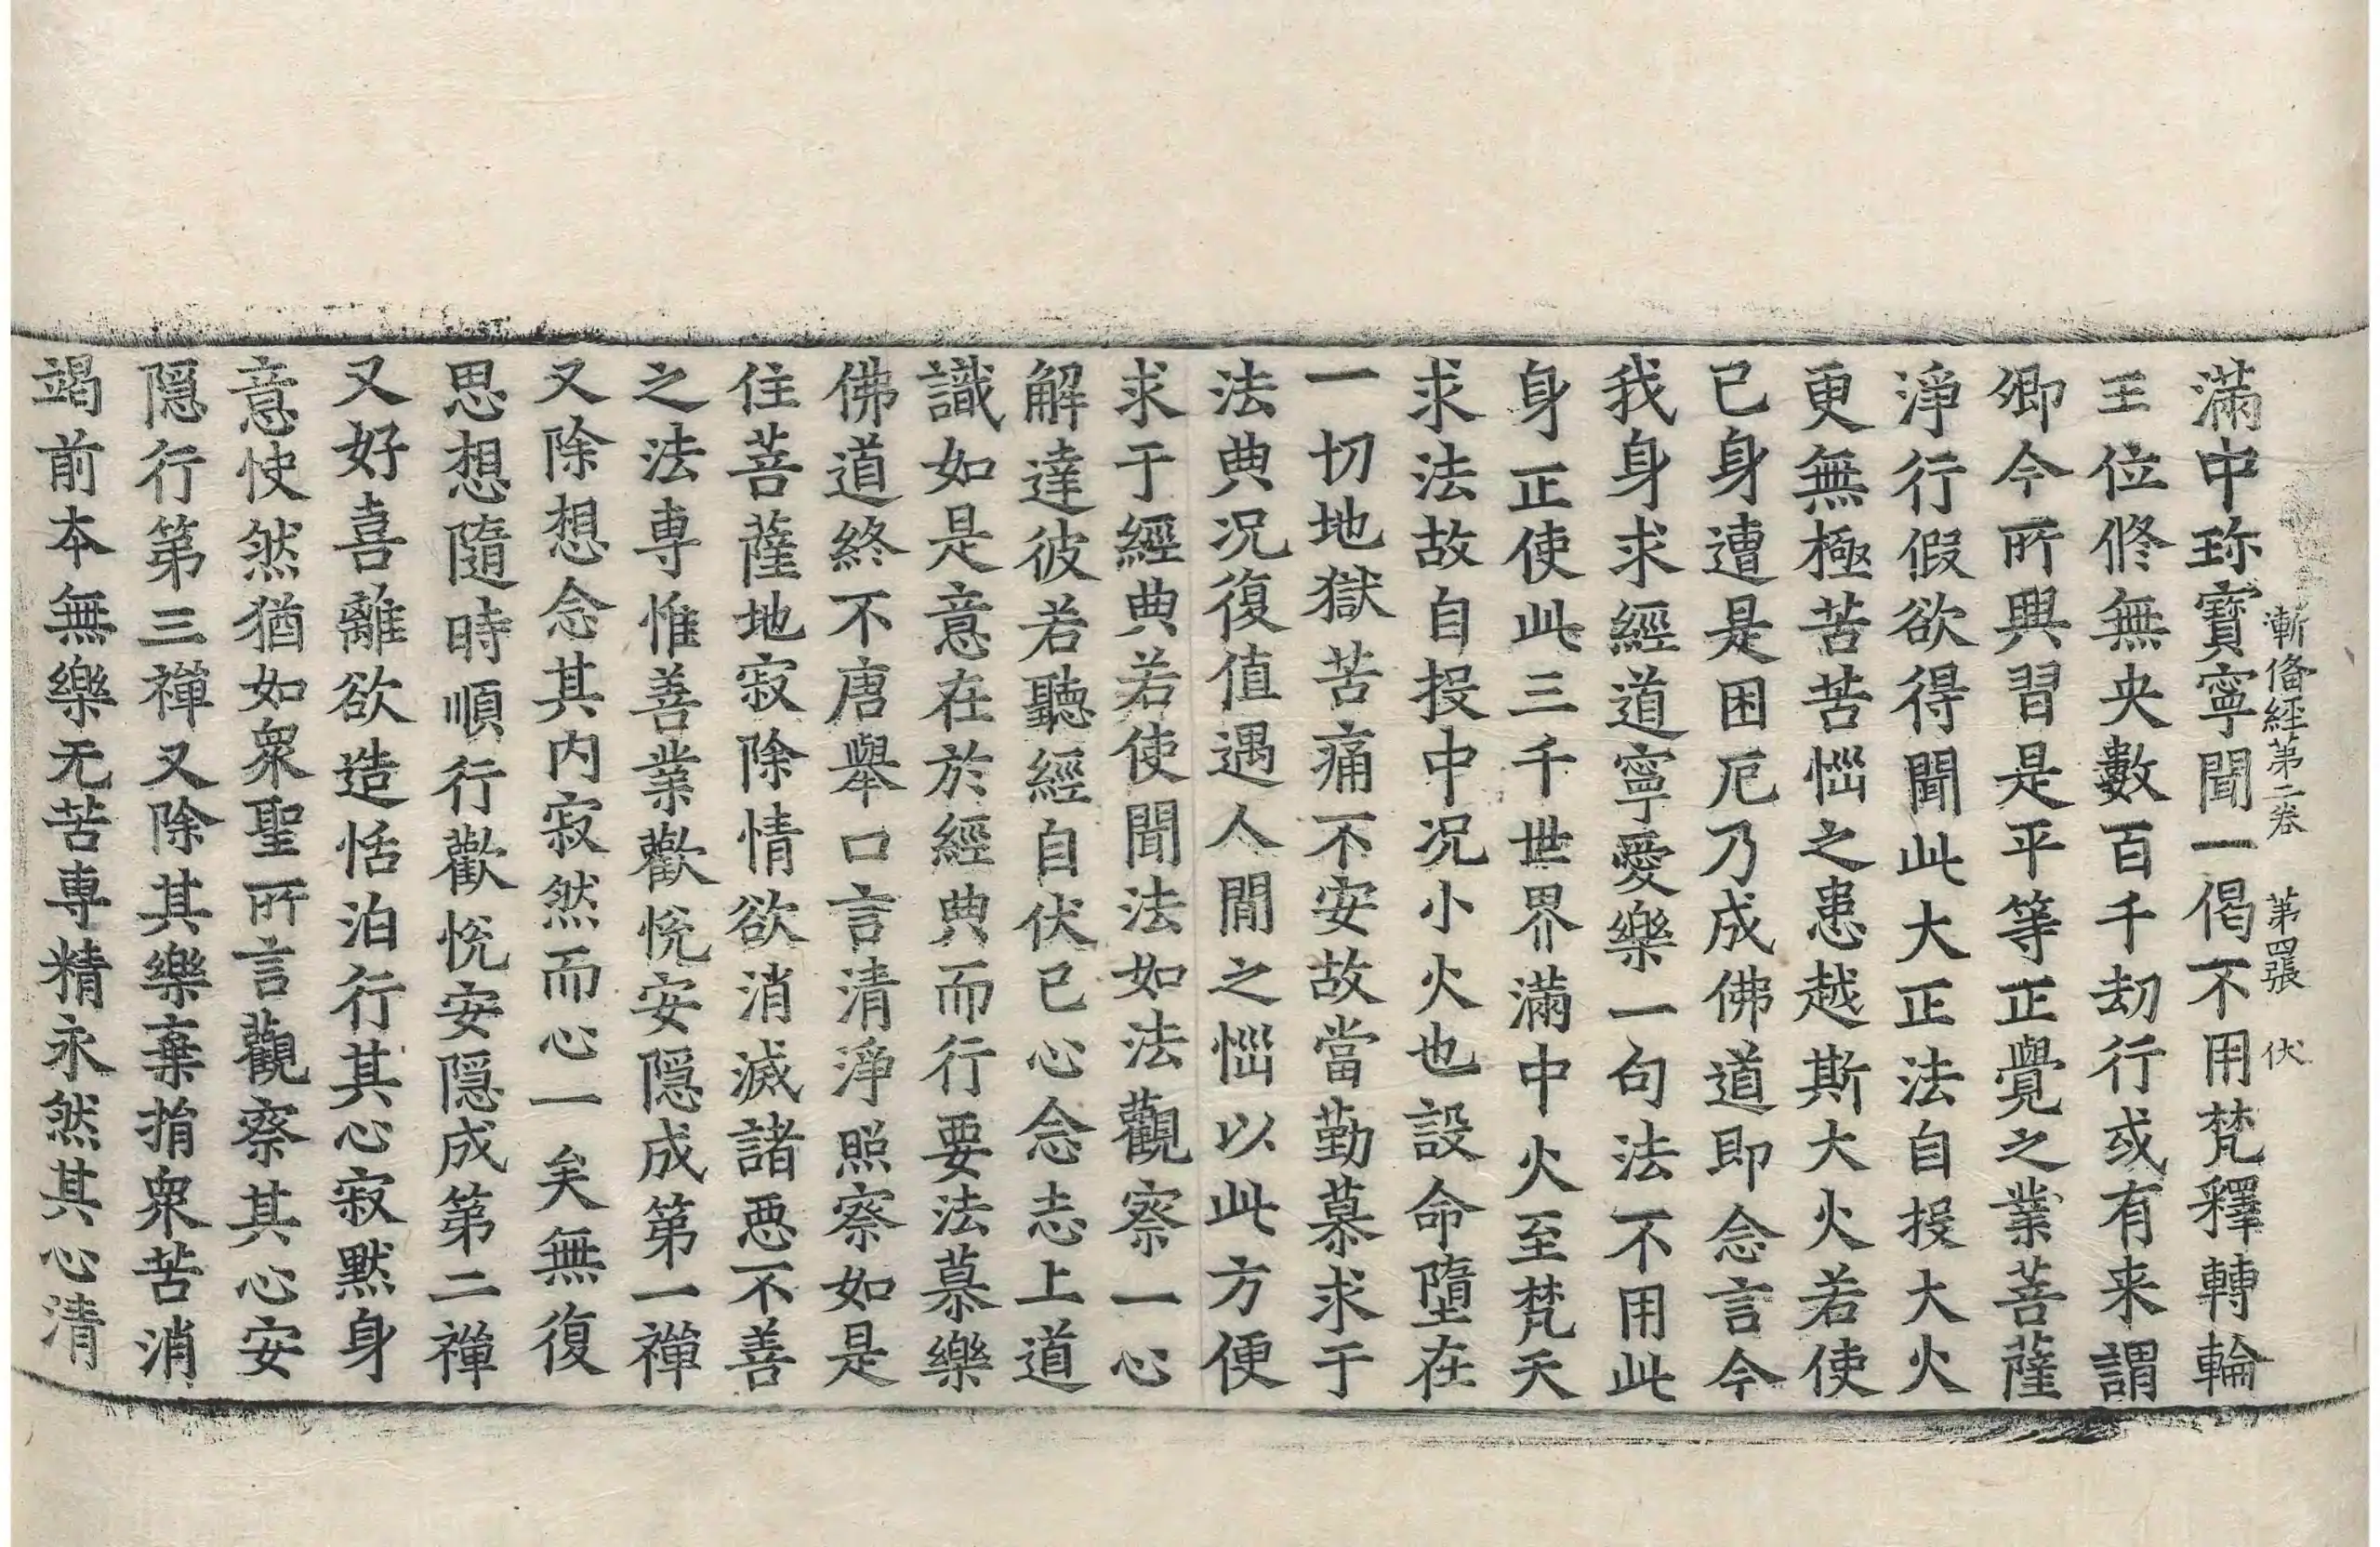 漸俻經第二卷 第四張 伏
滿中珎寶寧聞一偈不用梵釋轉輪
王位脩無央數百千劫行或有来謂
卿今所興習是平等正覺之業菩薩
淨行假欲得聞此大正法自投大火
更無極苦苦惱之患越斯大火若使
已身遭是困厄乃成佛道即念言今
我身求經道寧愛樂一句法不用此
身正使此三千世界滿中火至梵天
求法故自投中况小火也設命墮在
一切地獄苦痛不安故當勤慕求于
法典况復值遇人間之惱以此方便
求于經典若使聞法如法觀察一心
解達彼若聽經自伏已心念志上道
識如是意在於經典而行要法慕樂
佛道終不唐舉口言清淨照察如是
住菩薩地寂除情欲消滅諸惡不善
之法專惟善業歡悅安隱成第一禪
又除想念其内寂然而心一矣無復
思想隨時順行歡悅安隱成第二禪
又好喜離欲造恬泊行其心寂默身
意怏然猶如衆聖所言觀察其心安
隱行第三禪又除其樂棄捐衆苦消
竭前本無樂无苦專精永然其心清